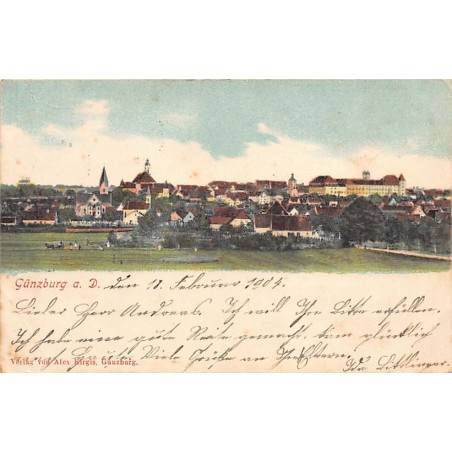 Günzburg a. D. den 11. Februar 1904.
Lieber Herr Andreas. Ich will Ihre Bitte erfüllen.
Ich habe eine gute Reise gemacht, bin glücklich
Viele Grüße an Ihre Eltern.
Verlag von Alex Kirgis, Günzburg.